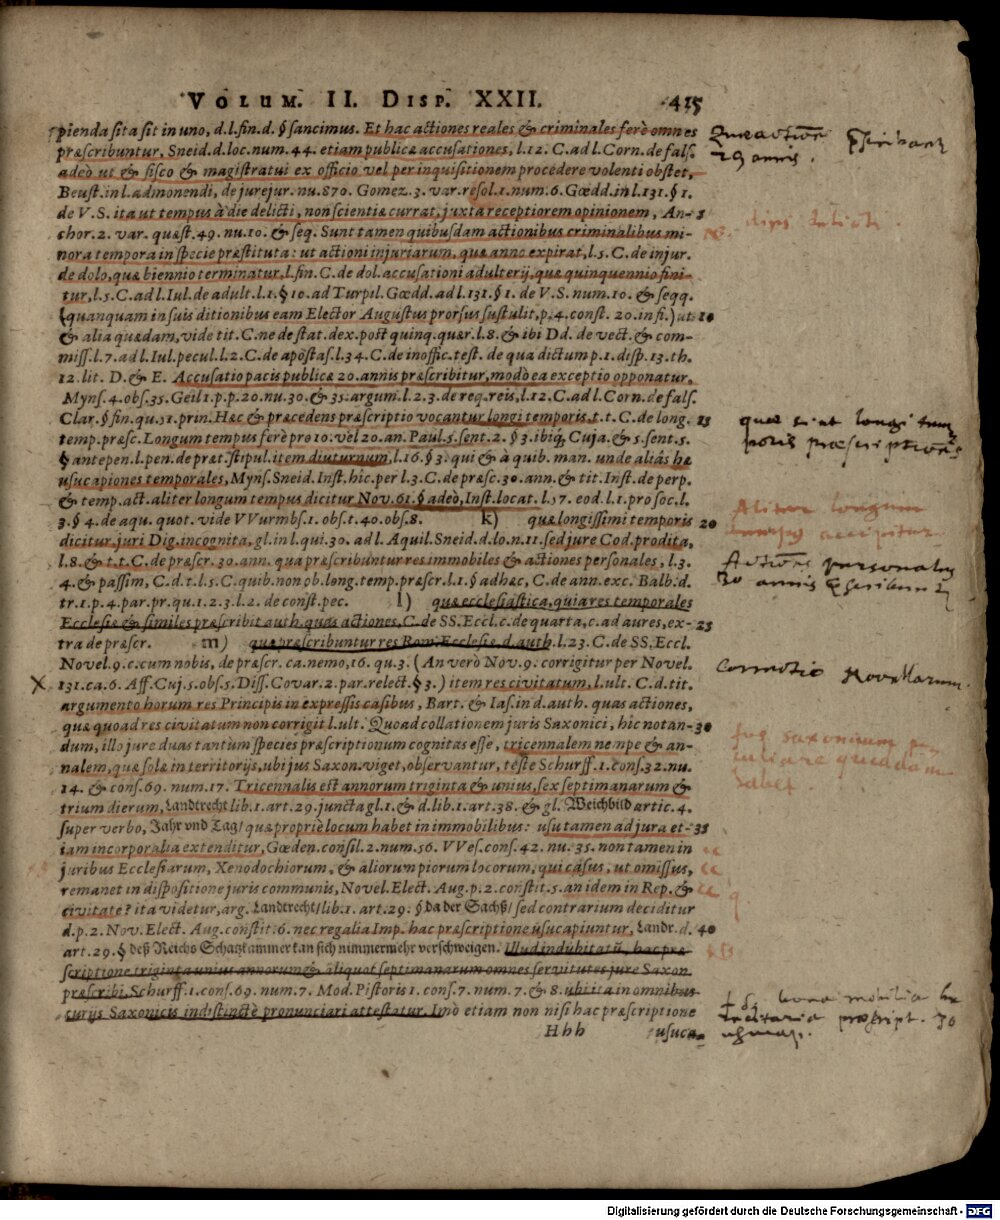 VOLUM. II. DISP. XXII. 425
pienda sita sit in uno, d.l.fin.d. §sancimus. Et hac actiones reales & criminales ferè omnes
præscribuntur, Sneid. d. loc. num. 44. etiam publicæ accusationes, l. 12. C. ad l. Corn. de fals.
adeò ut & fisco & magistratui ex officio vel per inquisitionem procedere volenti obstet,
Beust. in l. admonendi, de jurejur. nu. 870. Gomez. 3. var. resol. 1. num. 6. Gœdd. in l. 131. § 1.
de V.S. ita ut tempus à die delicti, non scientiæ currat, juxta receptiorem opinionem, An- 5
chor. 2. var. quæst. 49. nu. 10. & seq. Sunt tamen quibusdam actionibus criminalibus mi-
nora tempora in specie præstituta: ut actioni injuriarum, quæ anno expirat, l. 5. C. de injur.
de dolo, quæ biennio terminatur, l. fin. C. de dol. accusationi adulterij, quæ quinquennio fini-
tur, l. 5. C. ad l. Iul. de adult. l. 1. § 10. ad Turpil. Gœdd. ad l. 131. § 1. de V.S. num. 10. & seqq.
(quanquam in suis ditionibus eam Elector Augustus prorsus sustulit, p. 4. const. 20. in fi.) ut 10
& alia quædam, vide tit. C. ne de stat. def. post quinq. quær. l. 8. & ibi Dd. de vect. & com-
miss. l. 7. ad l. Iul. pecul. l. 2. C. de apostas. l. 34. C. de inoffic. test. de qua dictum p. 1. disp. 13. th.
12. lit. D. & E. Accusatio pacis publicæ 20. annis præscribitur, modò ea exceptio opponatur,
Myns. 4. obs. 35. Geil 1. p. p. 20. nu. 30. & 35. argum. l. 2. 3. de req. reis, l. 12. C. ad l. Corn. de fals.
Clar. § fin. qu. 51. prin. Hæc & præcedens præscriptio vocantur longi temporis, t. t. C. de long. 15
temp. præsc. Longum tempus ferè pro 10. vel 20. an. Paul. 5. sent. 2. § 3. ibiq; Cuja. & 5. sent. 5.
§ antepen. l. pen. de præt. stipul. item diuturnum, l. 16. § 3. qui & à quib. man. unde aliàs hæ
usucapiones temporales, Myns. Sneid. Inst. hic. per l. 3. C. de præsc. 30. ann. & tit. Inst. de perp.
& temp. act. aliter longum tempus dicitur Nov. 61. § adeò, Inst. locat. l. 17. eod. l. 1. pro soc. l.
3. § 4. de aqu. quot. vide VVurmbs. 1. obs. t. 40. obs. 8. k) quæ longissimi temporis 20
dicitur, juri Dig. incognita, gl. in l. qui. 30. ad l. Aquil. Sneid. d. lo. n. 11. sed jure Cod. prodita,
l. 8. & t. t. C. de præscr. 30. ann. qua præscribuntur res immobiles & actiones personales, l. 3.
4. & passim, C. d. t. l. 5. C. quib. non ob. long. temp. præscr. l. 1. § ad hæc, C. de ann. exc. Balb. d.
tr. 1. p. 4. par. pr. qu. 1. 2. 3. l. 2. de const. pec. l) quæ ecclesiastica, quia res temporales
Ecclesiæ & similes præscribit auth. quas actiones, C. de SS. Eccl. c. de quarta, c. ad aures, ex- 25
tra de præscr. m) quæ præscribuntur res Rom. Ecclesiæ, d. auth. l. 23. C. de SS. Eccl.
Novel. 9. c. cum nobis, de præscr. ca. nemo, 16. qu. 3. (An verò Nov. 9. corrigitur per Novel.
131. ca. 6. Aff. Cuj. 5. obs. 5. Diss. Covar. 2. par. relect. § 3.) item res civitatum, l. ult. C. d. tit.
argumento horum res Principis in expressis casibus, Bart. & Ias. in d. auth. quas actiones,
quæ quoad res civitatum non corrigit l. ult. Quoad collationem juris Saxonici, hic notan- 30
dum, illo jure duas tantùm species præscriptionum cognitas esse, tricennalem nempe & an-
nalem, quæ solæ in territorijs, ubi jus Saxon. viget, observantur, teste Schurff. 1. cons. 32. nu.
14. & cons. 69. num. 17. Tricennalis est annorum triginta & unius, sex septimanarum &
trium dierum, Landtrecht lib. 1. art. 29. juncta gl. 1. & d. lib. 1. art. 38. & gl. Weichbild artic. 4.
super verbo, Jahr vnd Tag/ quæ propriè locum habet in immobilibus: usu tamen ad jura et- 35
iam incorporalia extenditur, Gœden. consil. 2. num. 56. VVes. cons. 42. nu. 35. non tamen in
juribus Ecclesiarum, Xenodochiorum, & aliorum piorum locorum, qui casus, ut omissus,
remanet in dispositione juris communis, Novel. Elect. Aug. p. 2. constit. 5. an idem in Rep. &
civitate? ita videtur, arg. Landtrecht/ lib. 1. art. 29. § da der Sachß/ sed contrarium deciditur
d. p. 2. Nov. Elect. Aug. constit. 6. nec regalia Imp. hac præscriptione usucapiuntur, Landr. d. 40
art. 29. § deß Reichs Schatzkammer kan sich nimmermehr verschweigen. Illud indubitatū, hac præ
scriptione triginta unius annorum & aliquot septimanarum omnes servitutes jure Saxon.
præscribi, Schurff. 1. cons. 69. num. 7. Mod. Pistoris 1. cons. 7. num. 7. & 8. ubi ita in omnibus
curijs Saxonicis indistinctè pronunciari attestatur. Imò etiam non nisi hac præscriptione
Hhh usuca-
quæ sint longi tem
poris præscriptiones
Aliter longum
tempus accipitur
Actiones personales
30 annis
Correctio Novellarum.
Jus saxonicum pe
culiare quoddam
habet
Digitalisierung gefördert durch die Deutsche Forschungsgemeinschaft - DFG